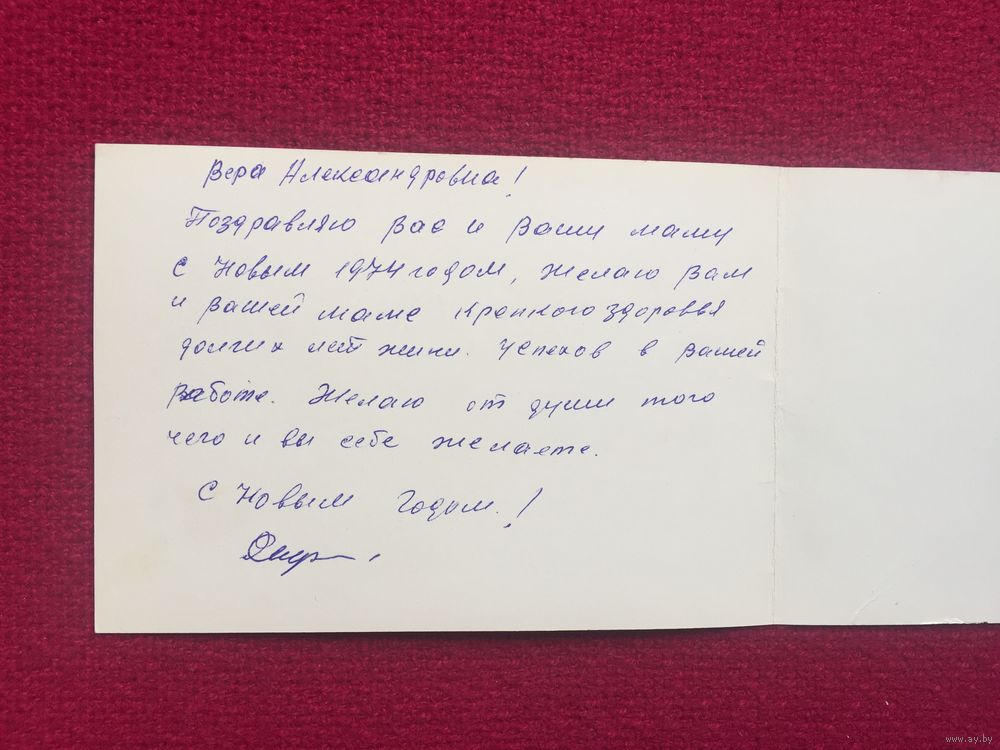 Вера Александровна!
Поздравляю Вас и Вашу маму
с Новым 1974 годом, желаю Вам
и Вашей маме крепкого здоровья
долгих лет жизни. Успехов в Вашей
работе. Желаю от души того
чего и вы себе желаете.
С Новым Годом.!
www.ay.by